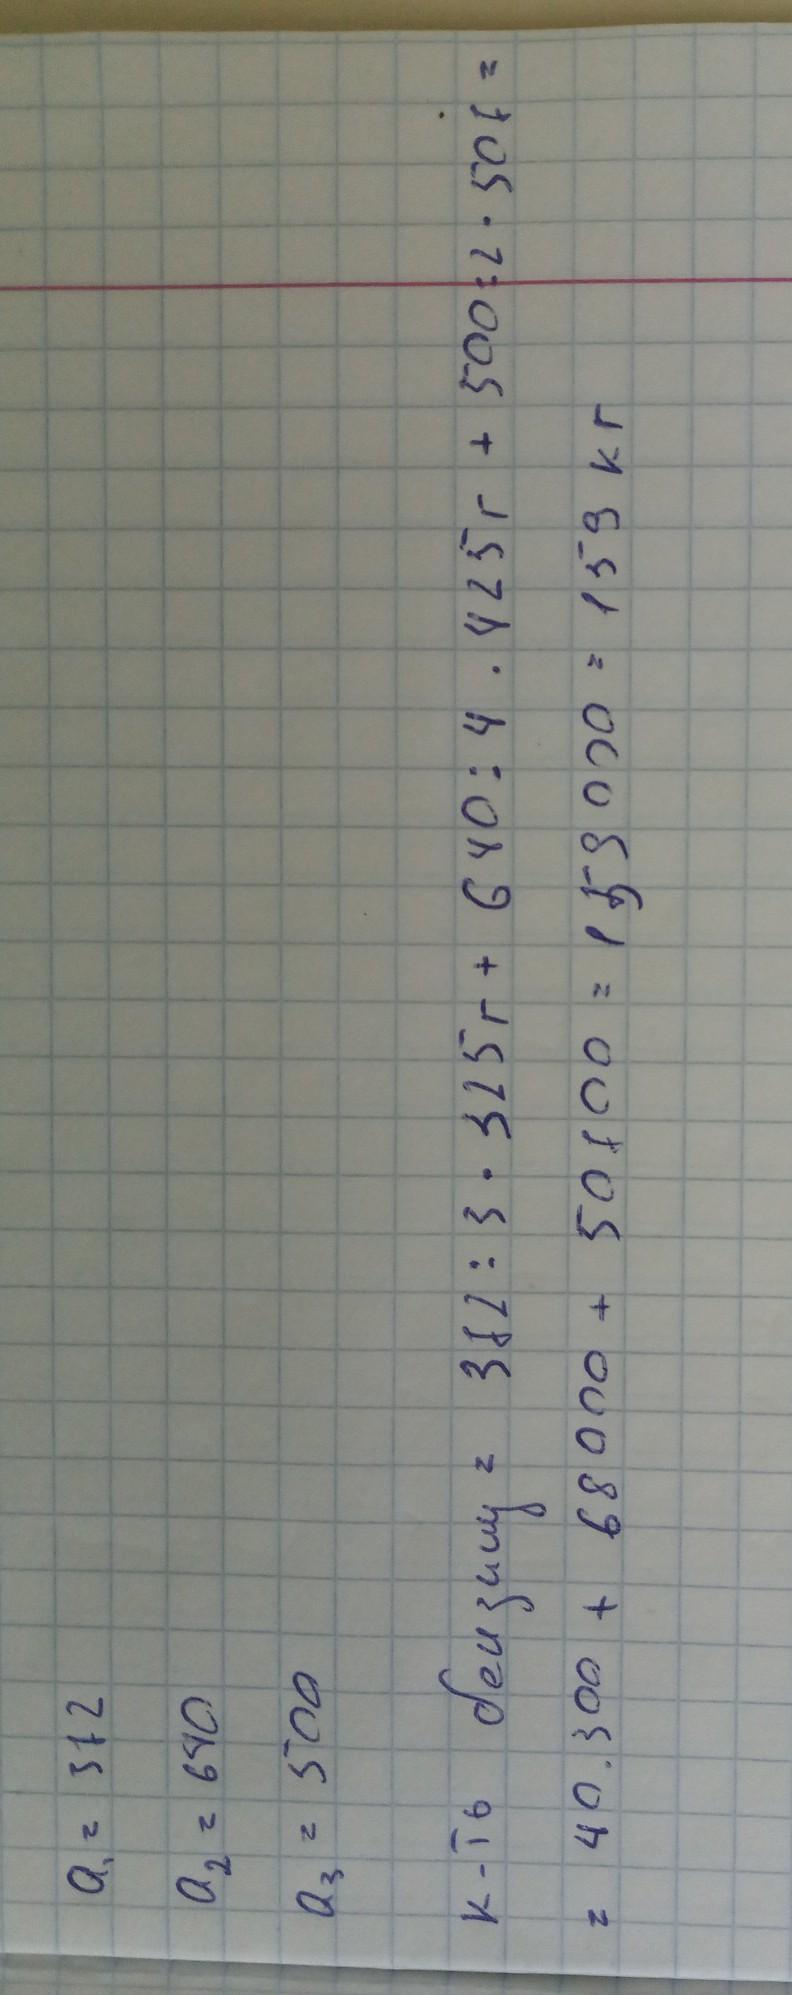 a₁ = 372
a₂ = 640
a₃ = 500
к-ть бензину = 372 : 3 · 325г + 640 : 4 · 425г + 500 : 2 · 507 =
= 40.300 + 68000 + 50700 = 159000 = 159 кг